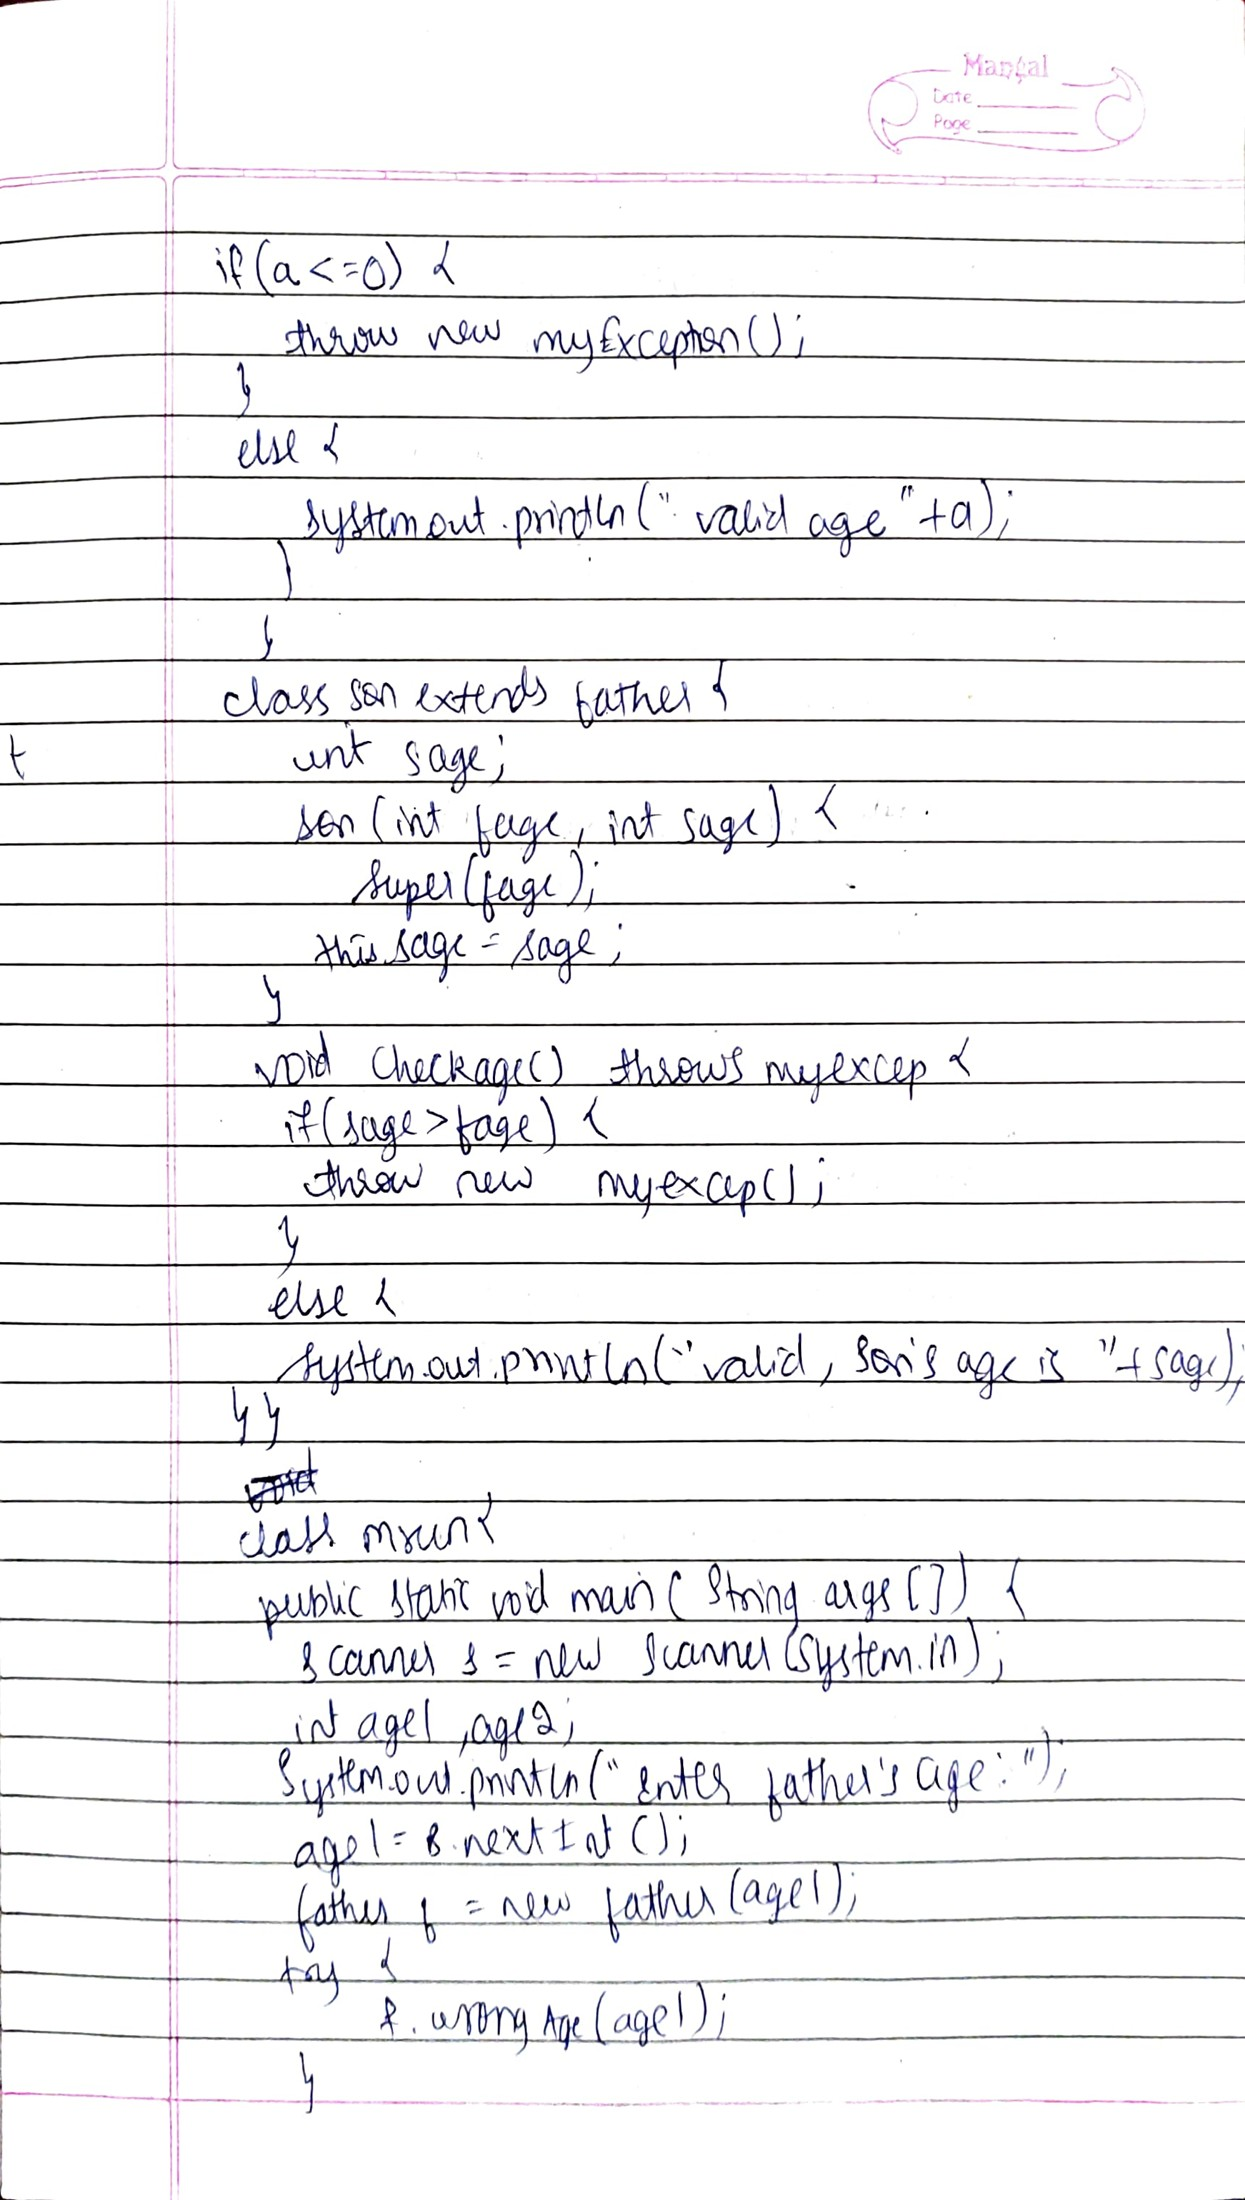 Mangal
Date
Page
if(a<=0) {
throw new myException();
}
else {
system.out.println(" valid age "+a);
}
}
class son extends father {
t
int sage;
son (int fage, int sage) {
super(fage);
this.sage = sage;
}
void checkage() throws myexcep {
if(sage>fage) {
throw new myexcep();
}
else {
system.out.println("valid, son's age is "+sage);
} }
class mrun{
public static void main( String args []) {
scanner s = new scanner(system.in);
int age1, age2;
System.out.println(" enter father's age: ");
age1= s.nextInt ();
father f = new father(age1);
try {
f. wrongAge(age1);
}